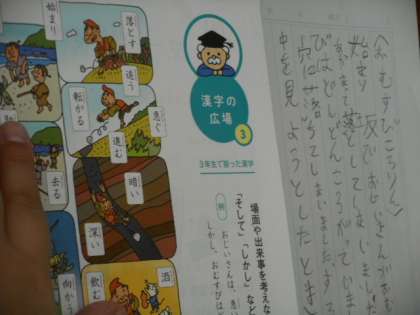 始まり
落とす
追う
転がる
急ぐ
進む
去る
暗い
深い
酒
飲む
向か
漢字の
広場
3
3年生で習った漢字
場面や出来事を考えな
「そして」「しかし」など
例
おじいさんは、急い
しかし、おむすびは
〈おむすびころりん〉
始まり 坂でおじいさんがおむ
落としてしまいました
びはどんどんころがってい
穴に落ちてしまいました。する
中を見ようとしたとき